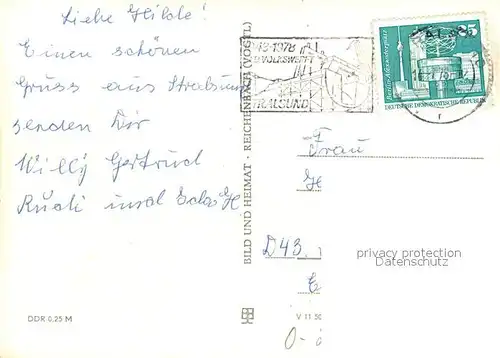 Liebe Hilde!
Einen schönen
Gruss aus Stralsund
senden Dir
Willy Gertrud
Rudi und
DDR 0,25 M
BILD UND HEIMAT · REICHENBACH (VOGTL)
1948-1978
VOLKSWERFT
STRALSUND
Berlin-Alexanderplatz
DEUTSCHE DEMOKRATISCHE REPUBLIK
Frau
D43.
privacy protection
Datenschutz
V 11 50